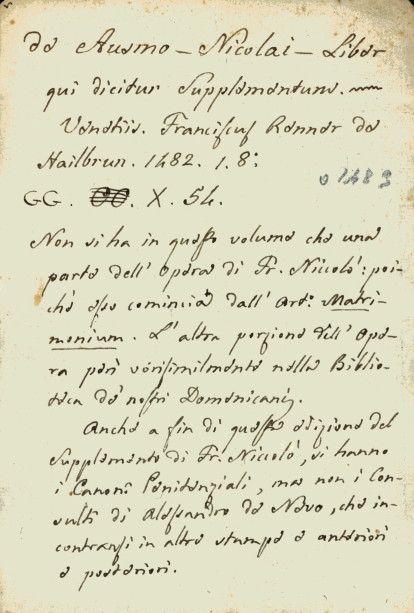 de Ausmo - Nicolai - Liber
qui dicitur Supplementum.
Venetiis. Franciscus Renner de
Hailbrun. 1482. 1. 8:
o 1483
GG. X. 54.
Non si ha in questo volume che una
parte dell' Opera di Fr. Niccolò: poi-
chè esso comincia dall' Art.o Matri-
monium. L' altra porzione dell' Ope-
ra perì verisimilmente nella Biblio-
teca de' nostri Domenicani.
Anche a fin di questa edizione del
Supplemento di Fr. Niccolò, si hanno
i Canoni Penitenziali, ma non i Con-
sulti di Alessandro de Nevo, che in-
contransi in altre stampe e anteriori
e posteriori.